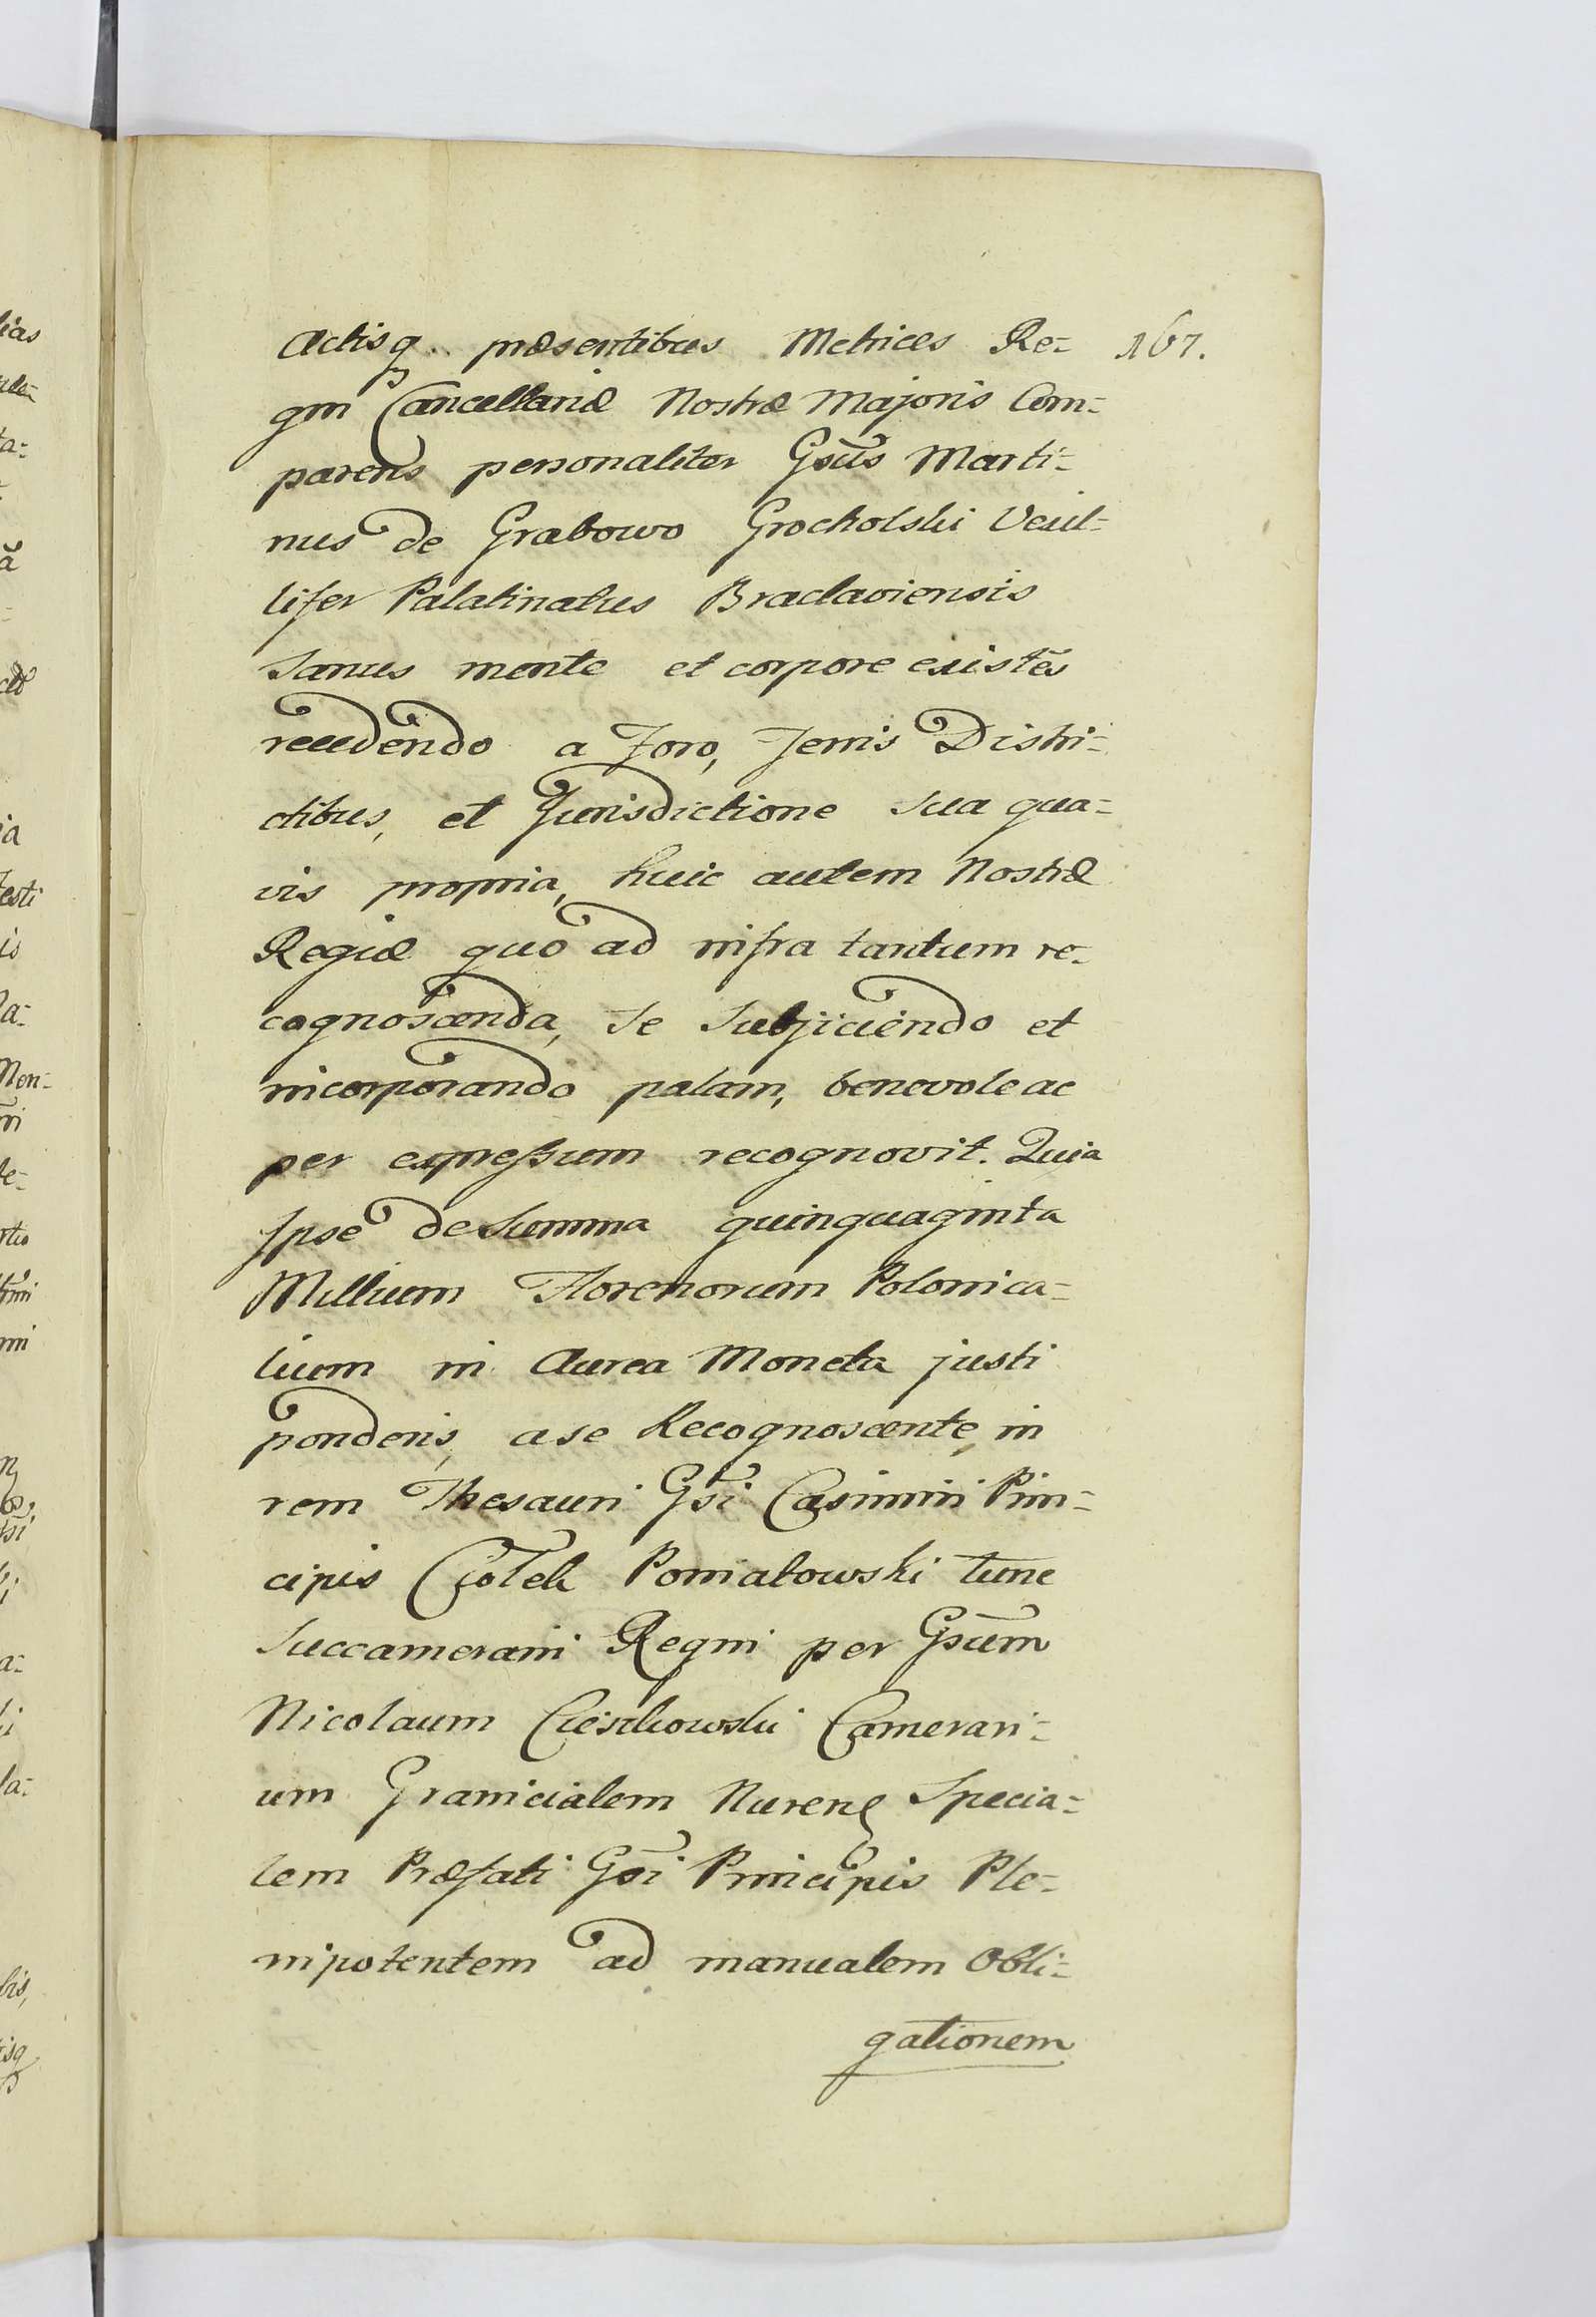 Actisq. præsentibus Metrices Re= 167.
gni Cancellariæ Nostræ Majoris Com=
parens personaliter Gsus Marti=
nus de Grabowo Grocholski Vexil=
lifer Palatinatus Braclaviensis
Sanus mente et corpore existēs
recedendo a Foro, Terris Distri=
ctibus, et Jurisdictione sua qua=
vis propria, huic autem Nostræ
Regiæ quo ad infra tantum re=
cognoscenda, se Subjiciendo et
incorporando palam, benevole ac
per expreſsum recognovit. Quia
Ipse de Summa quinquaginta
Millium Florenorum Polonica=
lium in Aurea Moneta justi
ponderis, a se Recognoscente, in
rem Thesauri Gsi Casimiri Prin=
cipis Ciołek Poniatowski tunc
Succamerarii Regni per Gsum
Nicolaum Cieszkowski Camerari=
um Granicialem Nurens Specia=
lem Præfati Gsi Principis Ple=
nipotentem ad manualem Obli=
gationem